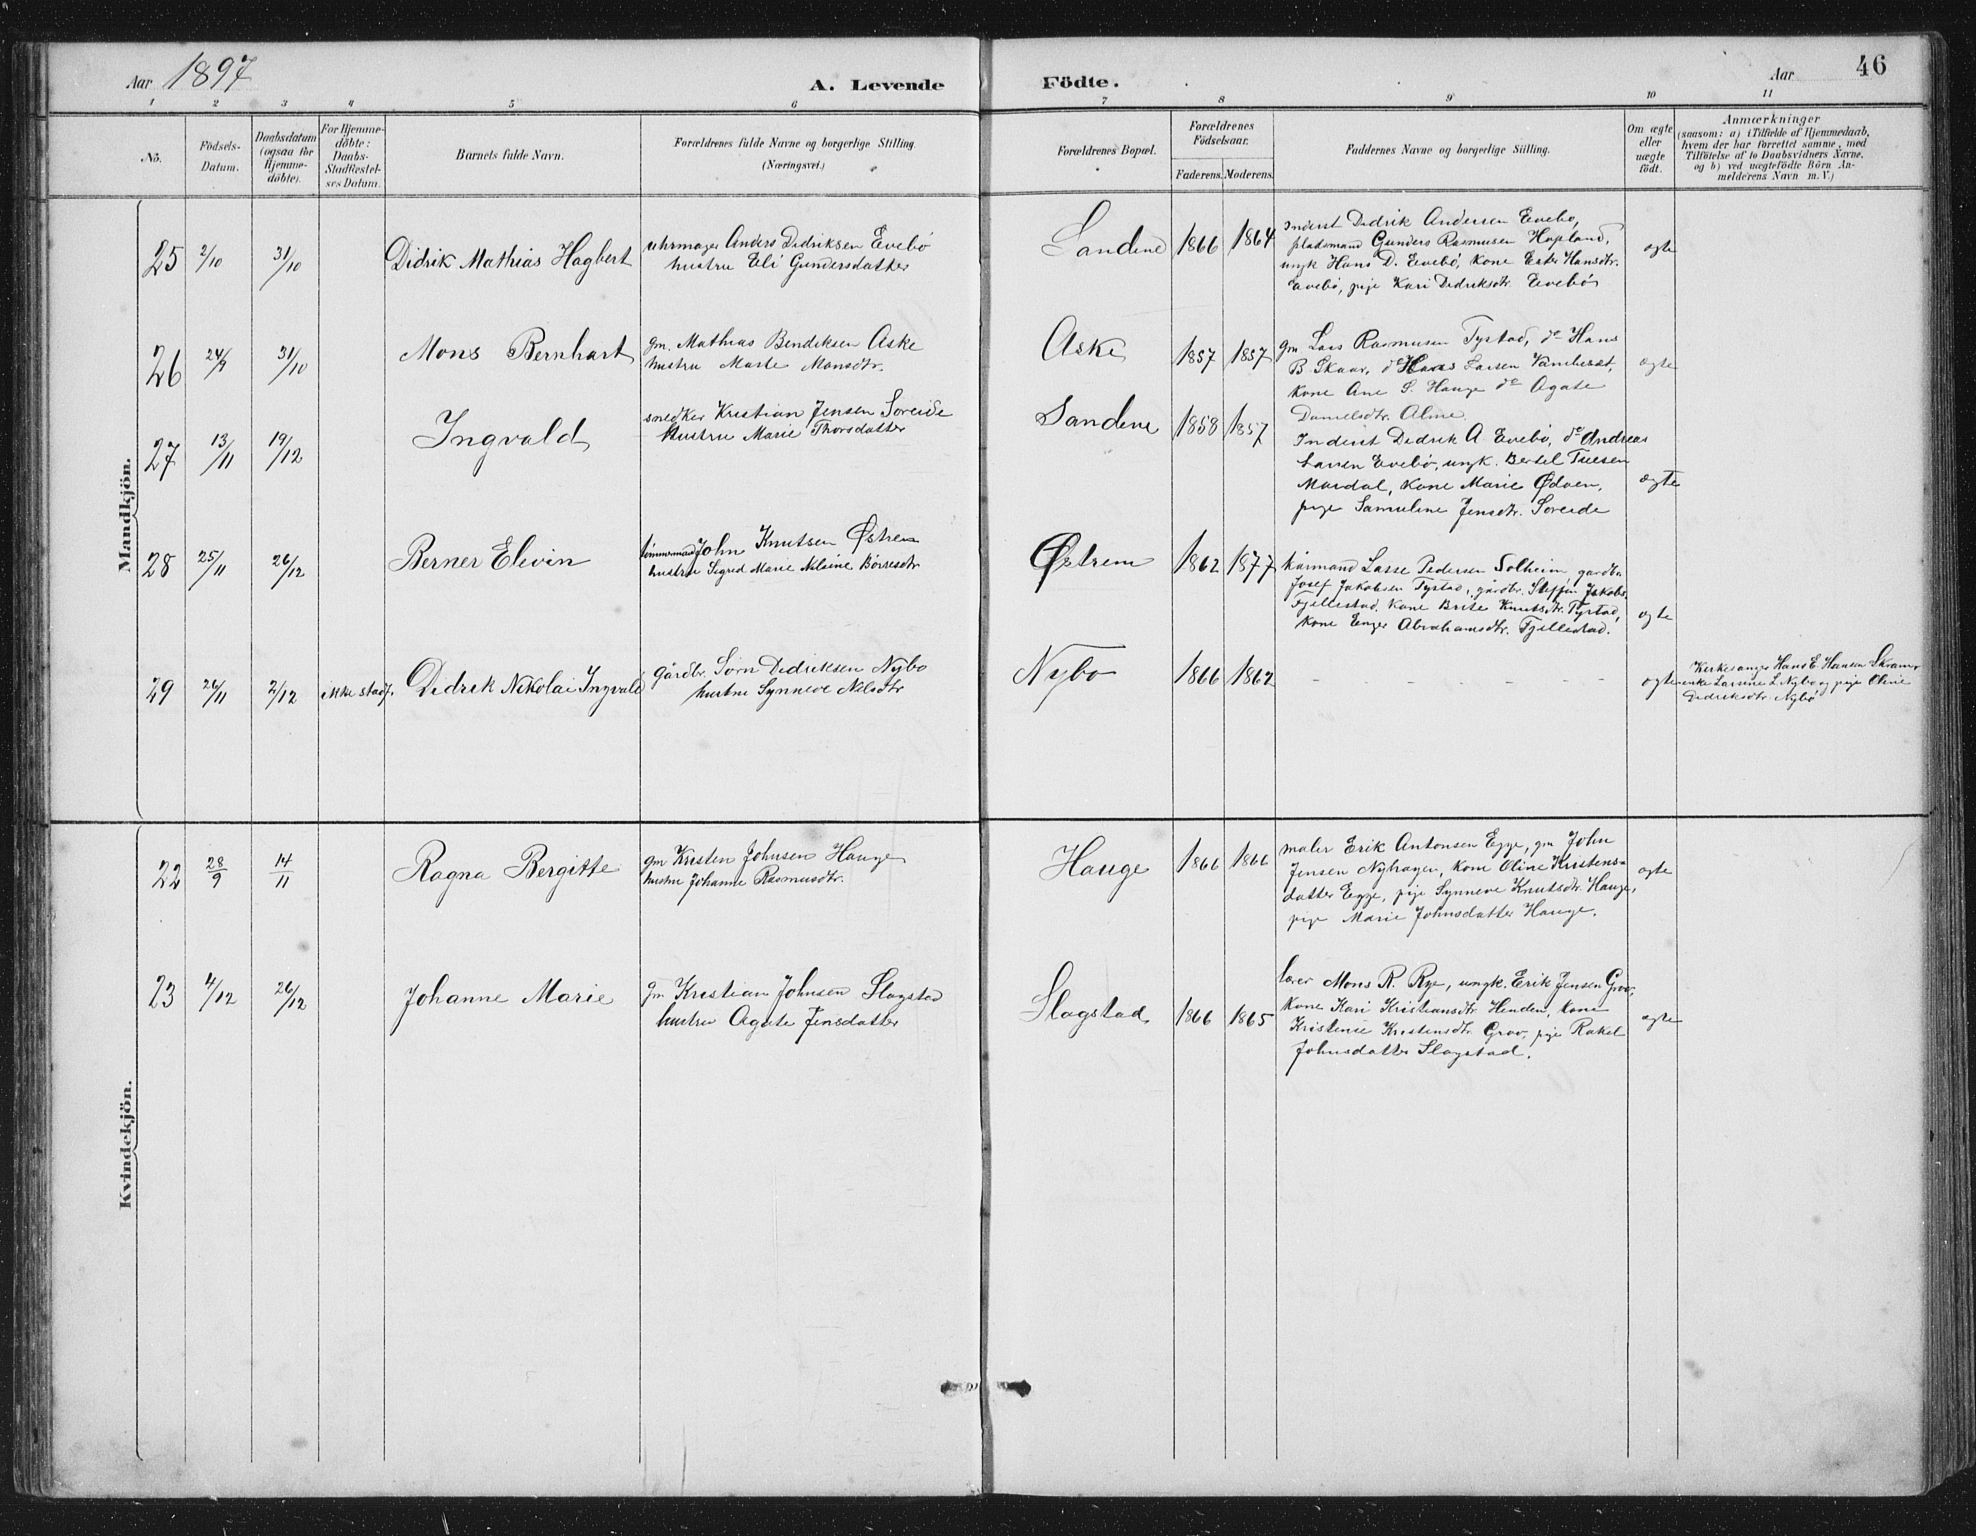 Aar 1897
A. Levende
Födte.
Aar
46
1
2
3
4
5
6
7
8
9
10
11
No.
Födsels-
Datum.
Daabsdatum
(ogsaa for
Hjemme-
döbte).
For Hjemme-
döbte:
Daabs-
Stadfæstel-
ses Datum.
Barnets fulde Navn.
Forældrenes fulde Navne og borgerlige Stilling.
(Næringsvei.)
Forældrenes Bopæl.
Forældrenes
Födselsaar.
Faderens.
Moderens.
Faddernes Navne og borgerlige Stilling.
Om ægte
eller
uægte
födt.
Anmærkninger
(saasom: a) i Tilfælde af Hjemmedaab,
hvem der har forrettet samme, med
Tilföielse af to Daabsvidners Navne,
og b) ved uægtefödte Börn An-
melderens Navn m. V.)
Mandkjön.
25 2/10 31/10 Didrik Mathias Hagbert
uhrmager Anders Didriksen Evebø
hustru Eli Gundersdatter
Sandene 1866 1864
Inderst Didrik Andersen Evebø,
pladsmand Gunders Rasmusen Hopland,
ungk Hans D. Evebø, kone Ester Hansdtr.
Evebø, pige Kari Didriksdtr. Evebø
ægte
26 24/9 31/10 Mons Bernhart
gm. Mathias Bendiksen Aske
hustru Marte Monsdtr.
Aske 1857 1857
gm Lars Rasmusen Tystad, do Hans
B. Skaar, do Hans Larsen Vambeset,
kone Ane S. Hauge do Agate
Danielsdtr. Alme
ægte
27 13/11 19/12 Ingvald
snedker Kristian Jensen Soreide
hustru Marie Thorsdatter
Sandene 1858 1857
Inderst Didrik A. Evebø, do Andreas
Larsen Evebø, ungk. Bertel
Mardal, kone Marie Ødven,
pige Samuline Jensdtr. Soreide
ægte
28 25/11 26/12 Berner Elevin
tømmermand John Knutsen Østrem
hustru Sigrid Marie Nilsine Børresdtr
Østrem 1862 1877
kårmand Lasse Pedersen Solheim, gårdbr
Josef Jakobsen Tystad, gårdbr. Steffen Jakobs.
Fjellestad, kone Brite Knutsdtr. Tystad,
kone Enger Abrahamsdtr. Fjellestad.
ægte
29 26/11 2/12 ikke stadf. Didrik Nikolai Ingvald
gårdbr. Sørn Didriksen Nybø
hustru Synneve Nilsdtr
Nybø 1866 1862
- - - - - - -
ægte
Kirkesanger Hans E. Hansen
enke Larsine L. Nybø og pige Oline
Didriksdtr. Nybø
Kvindekjön.
22 28/9 14/11 Ragna Bergitte
gm Kristen Johnsen Hauge
hustru Johanne Rasmusdtr.
Hauge 1866 1866
maler Erik Antonsen Egge, gm John
Jensen Nyhagen, kone Oline Kristens-
datter Egge, pige Synneve Knutsdtr. Hauge,
pige Marie Johnsdatter Hauge.
ægte
23 4/12 26/12 Johanne Marie
gm Kristian Johnsen Slagstad
hustru Agate Jensdatter
Slagstad 1866 1865
lærer Mons R. Rye, ungk. Erik Jensen Grov,
kone Kari Kristiansdtr Henden, kone
Kristense Kristensdtr. Grov, pige Rakel
Johnsdatter Slagstad.
ægte